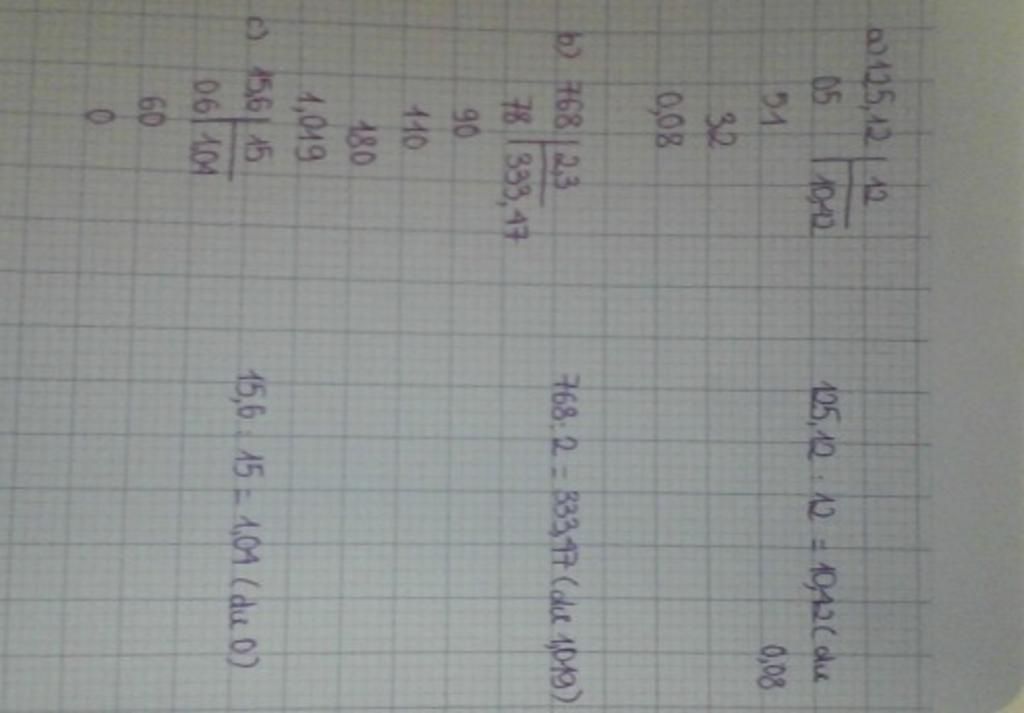 a) 125,12 | 12
05 | 10,42 125,12 : 12 = 10,42 (du
51 0,08
32
0,08
b) 768 | 2,3 768 : 2 = 333,47 (du 1,019)
78 | 333,47
90
110
180
1,019
c) 15,6 | 15 15,6 : 15 = 1,04 (du 0)
06 | 1,04
60
0